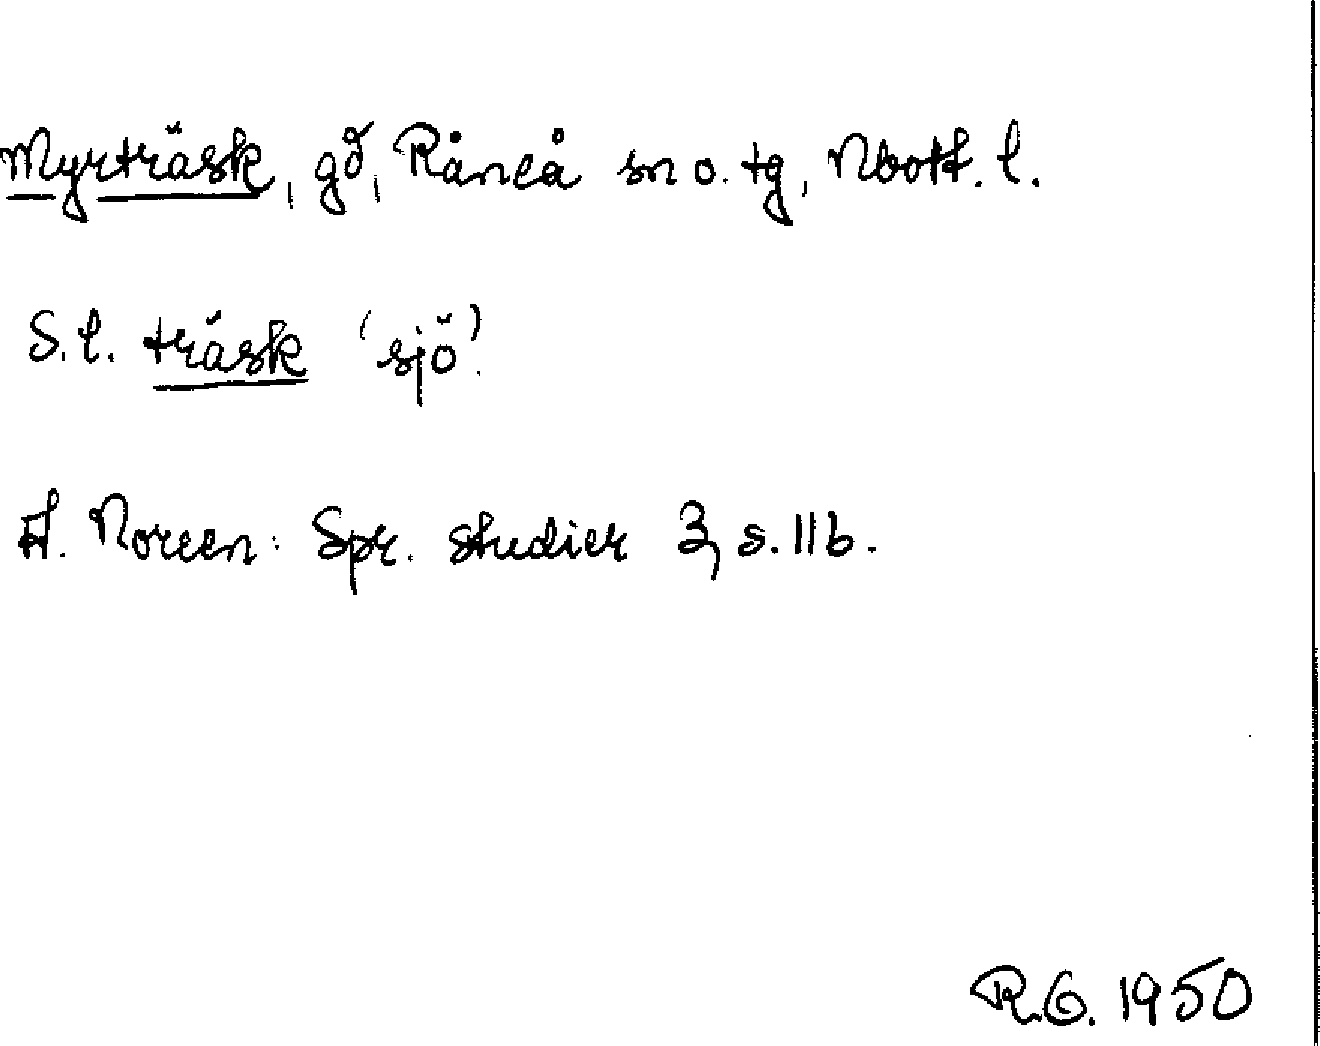 Myrträsk, gd, Råneå sn o. tg, Nbott. l.
S.l. träsk 'sjö'.
A. Noreen: Spr. studier 3, s. 11 b.
R.G. 1950